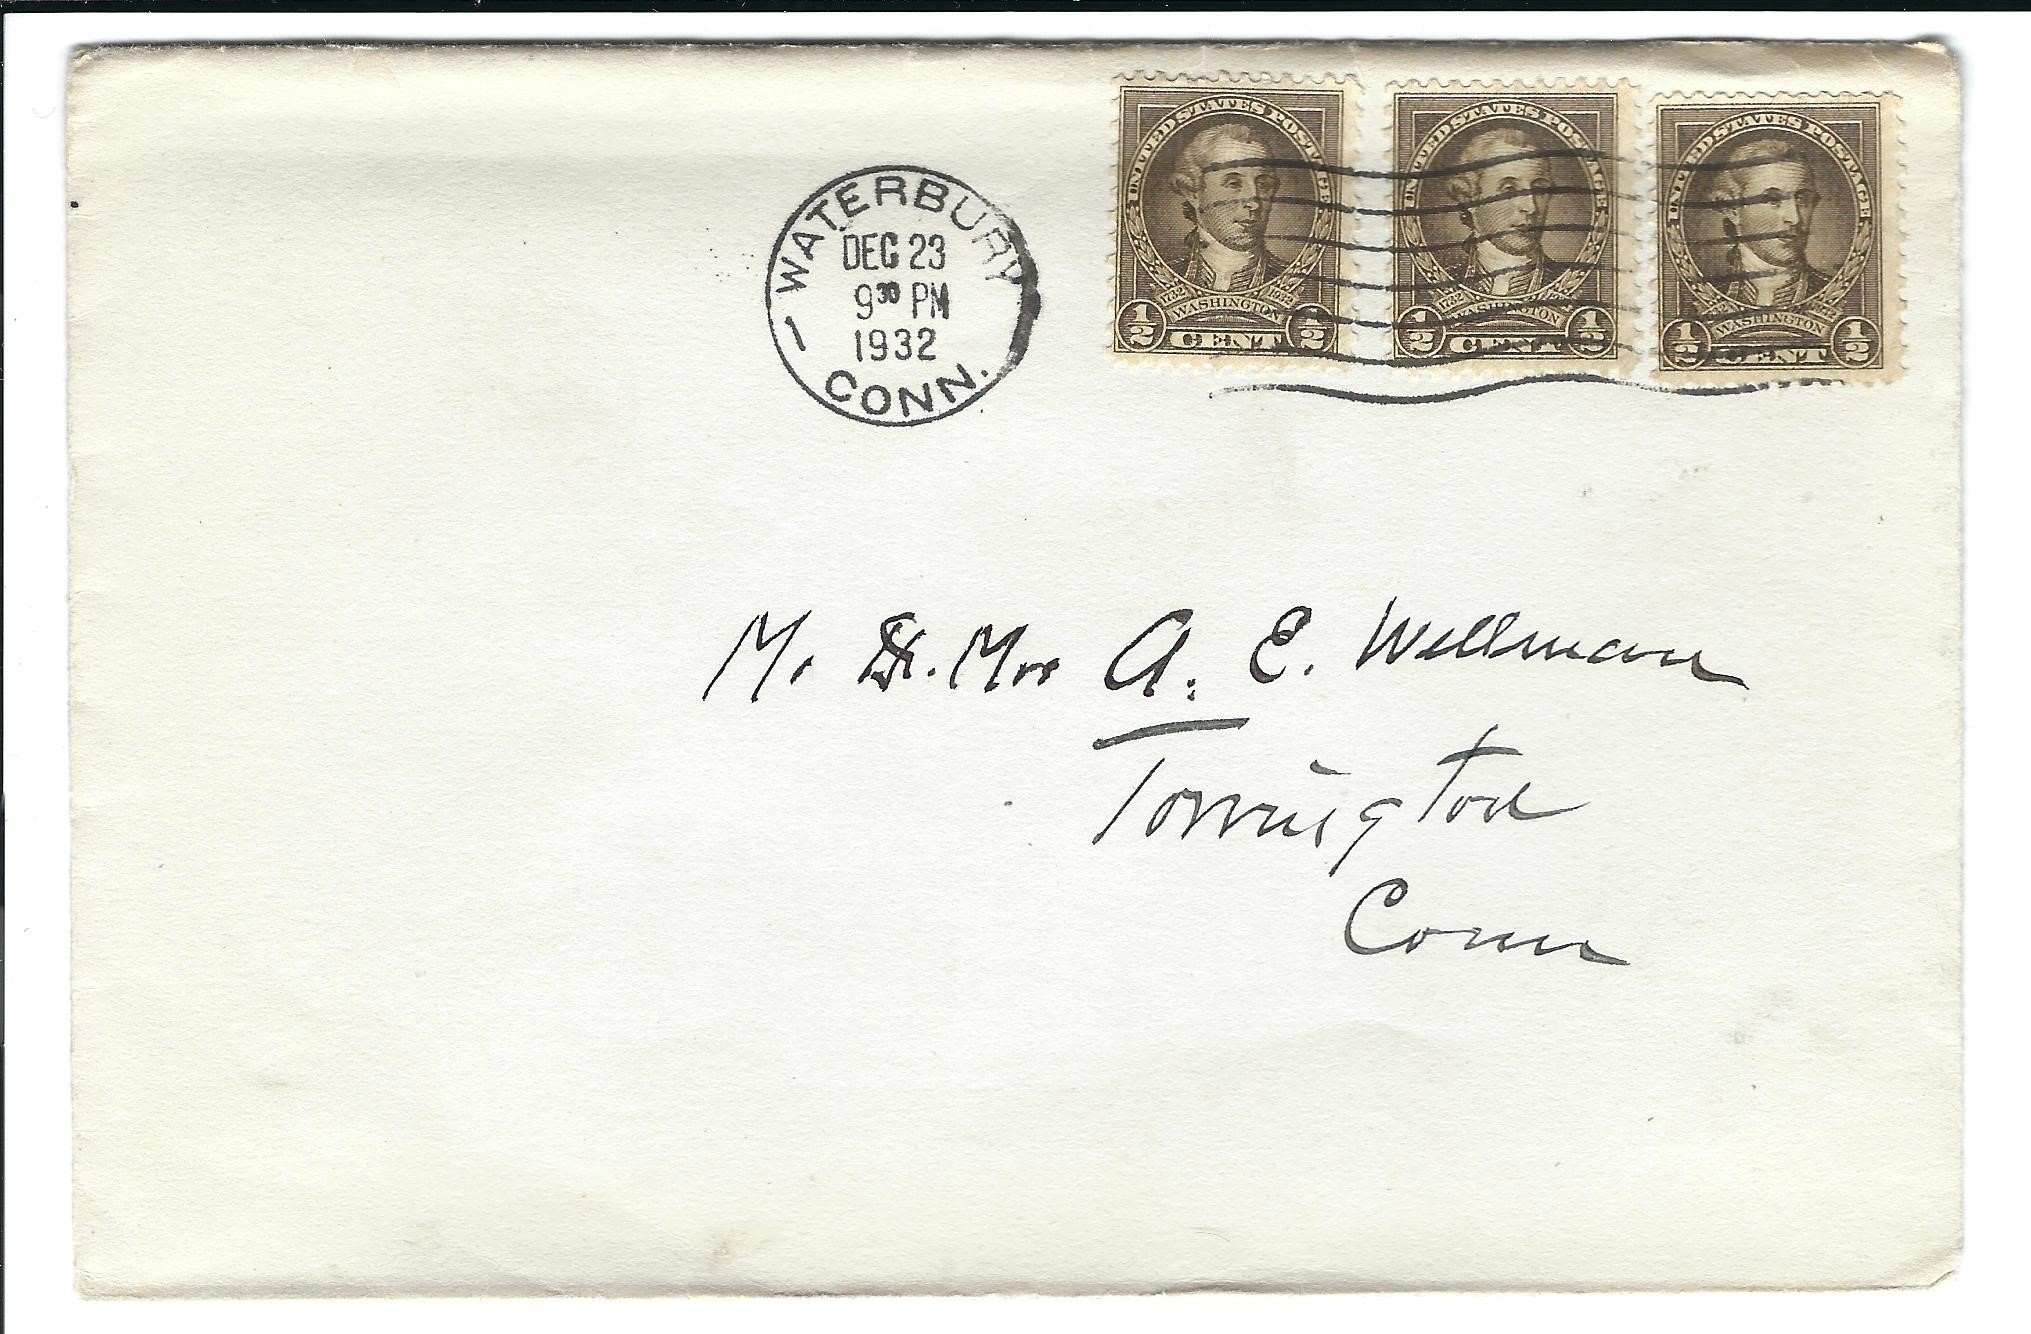 WATERBURY
DEC 23
9³⁰ PM
1932
CONN.
UNITED STATES POSTAGE
1732 WASHINGTON 1932
1/2 CENT 1/2
UNITED STATES POSTAGE
1732 WASHINGTON 1932
1/2 CENT 1/2
UNITED STATES POSTAGE
1732 WASHINGTON 1932
1/2 CENT 1/2
Mr & Mrs A. E. Wellman
Torrington
Conn